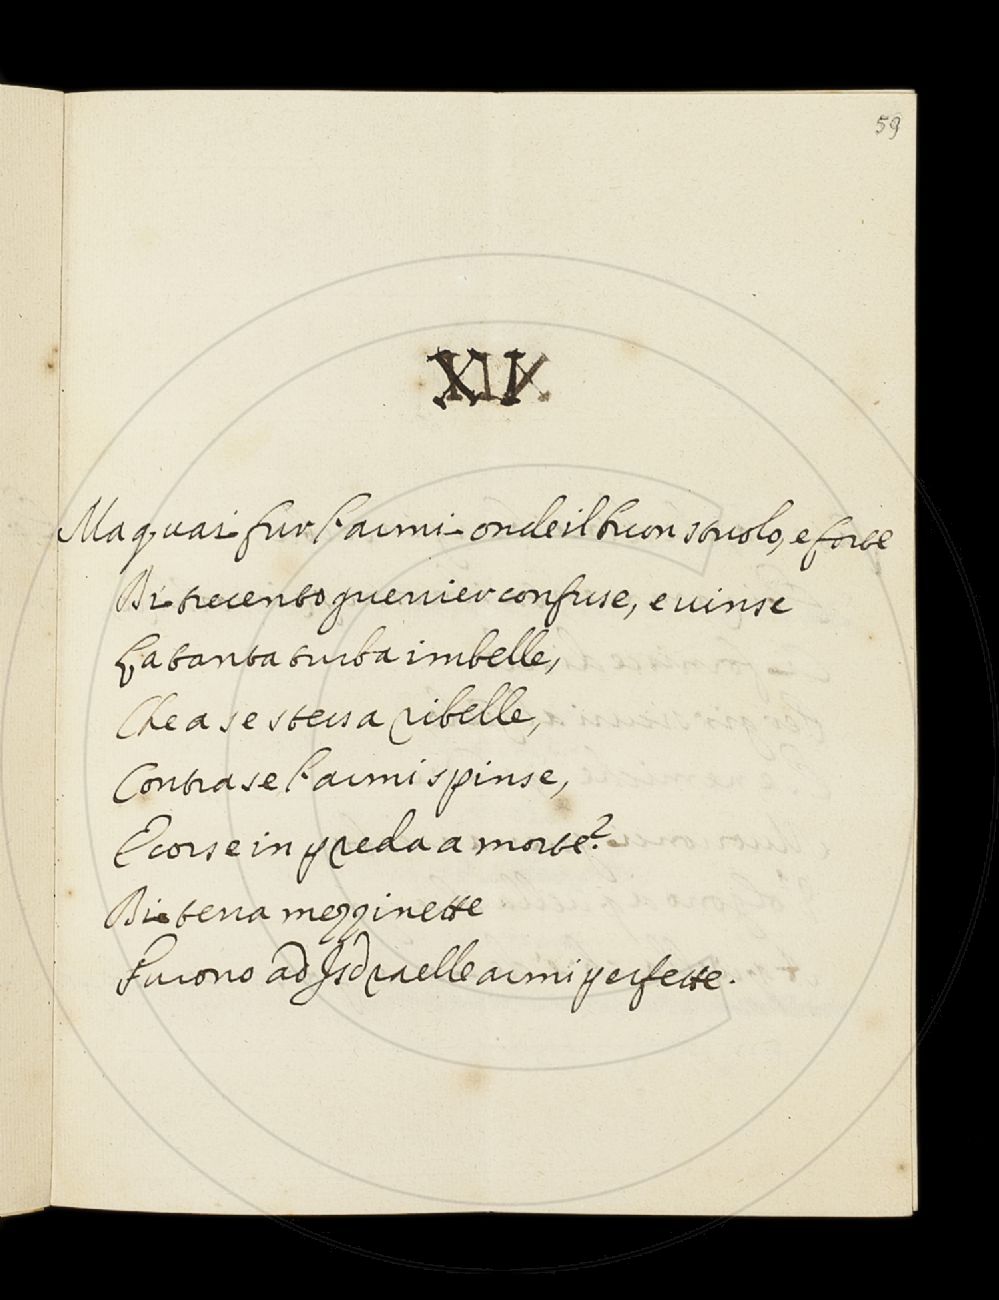 59
XIV
Ma quai fur l'armi onde il buon stuolo, e forte
Di trecento guerrier confuse, e uinse
La tanta turba imbelle,
Che a se stessa ribelle,
Contra se l'armi spinse,
E corse in preda a morte?
Di terra mezzinette
Furono ad Isdraelle armi perfette.